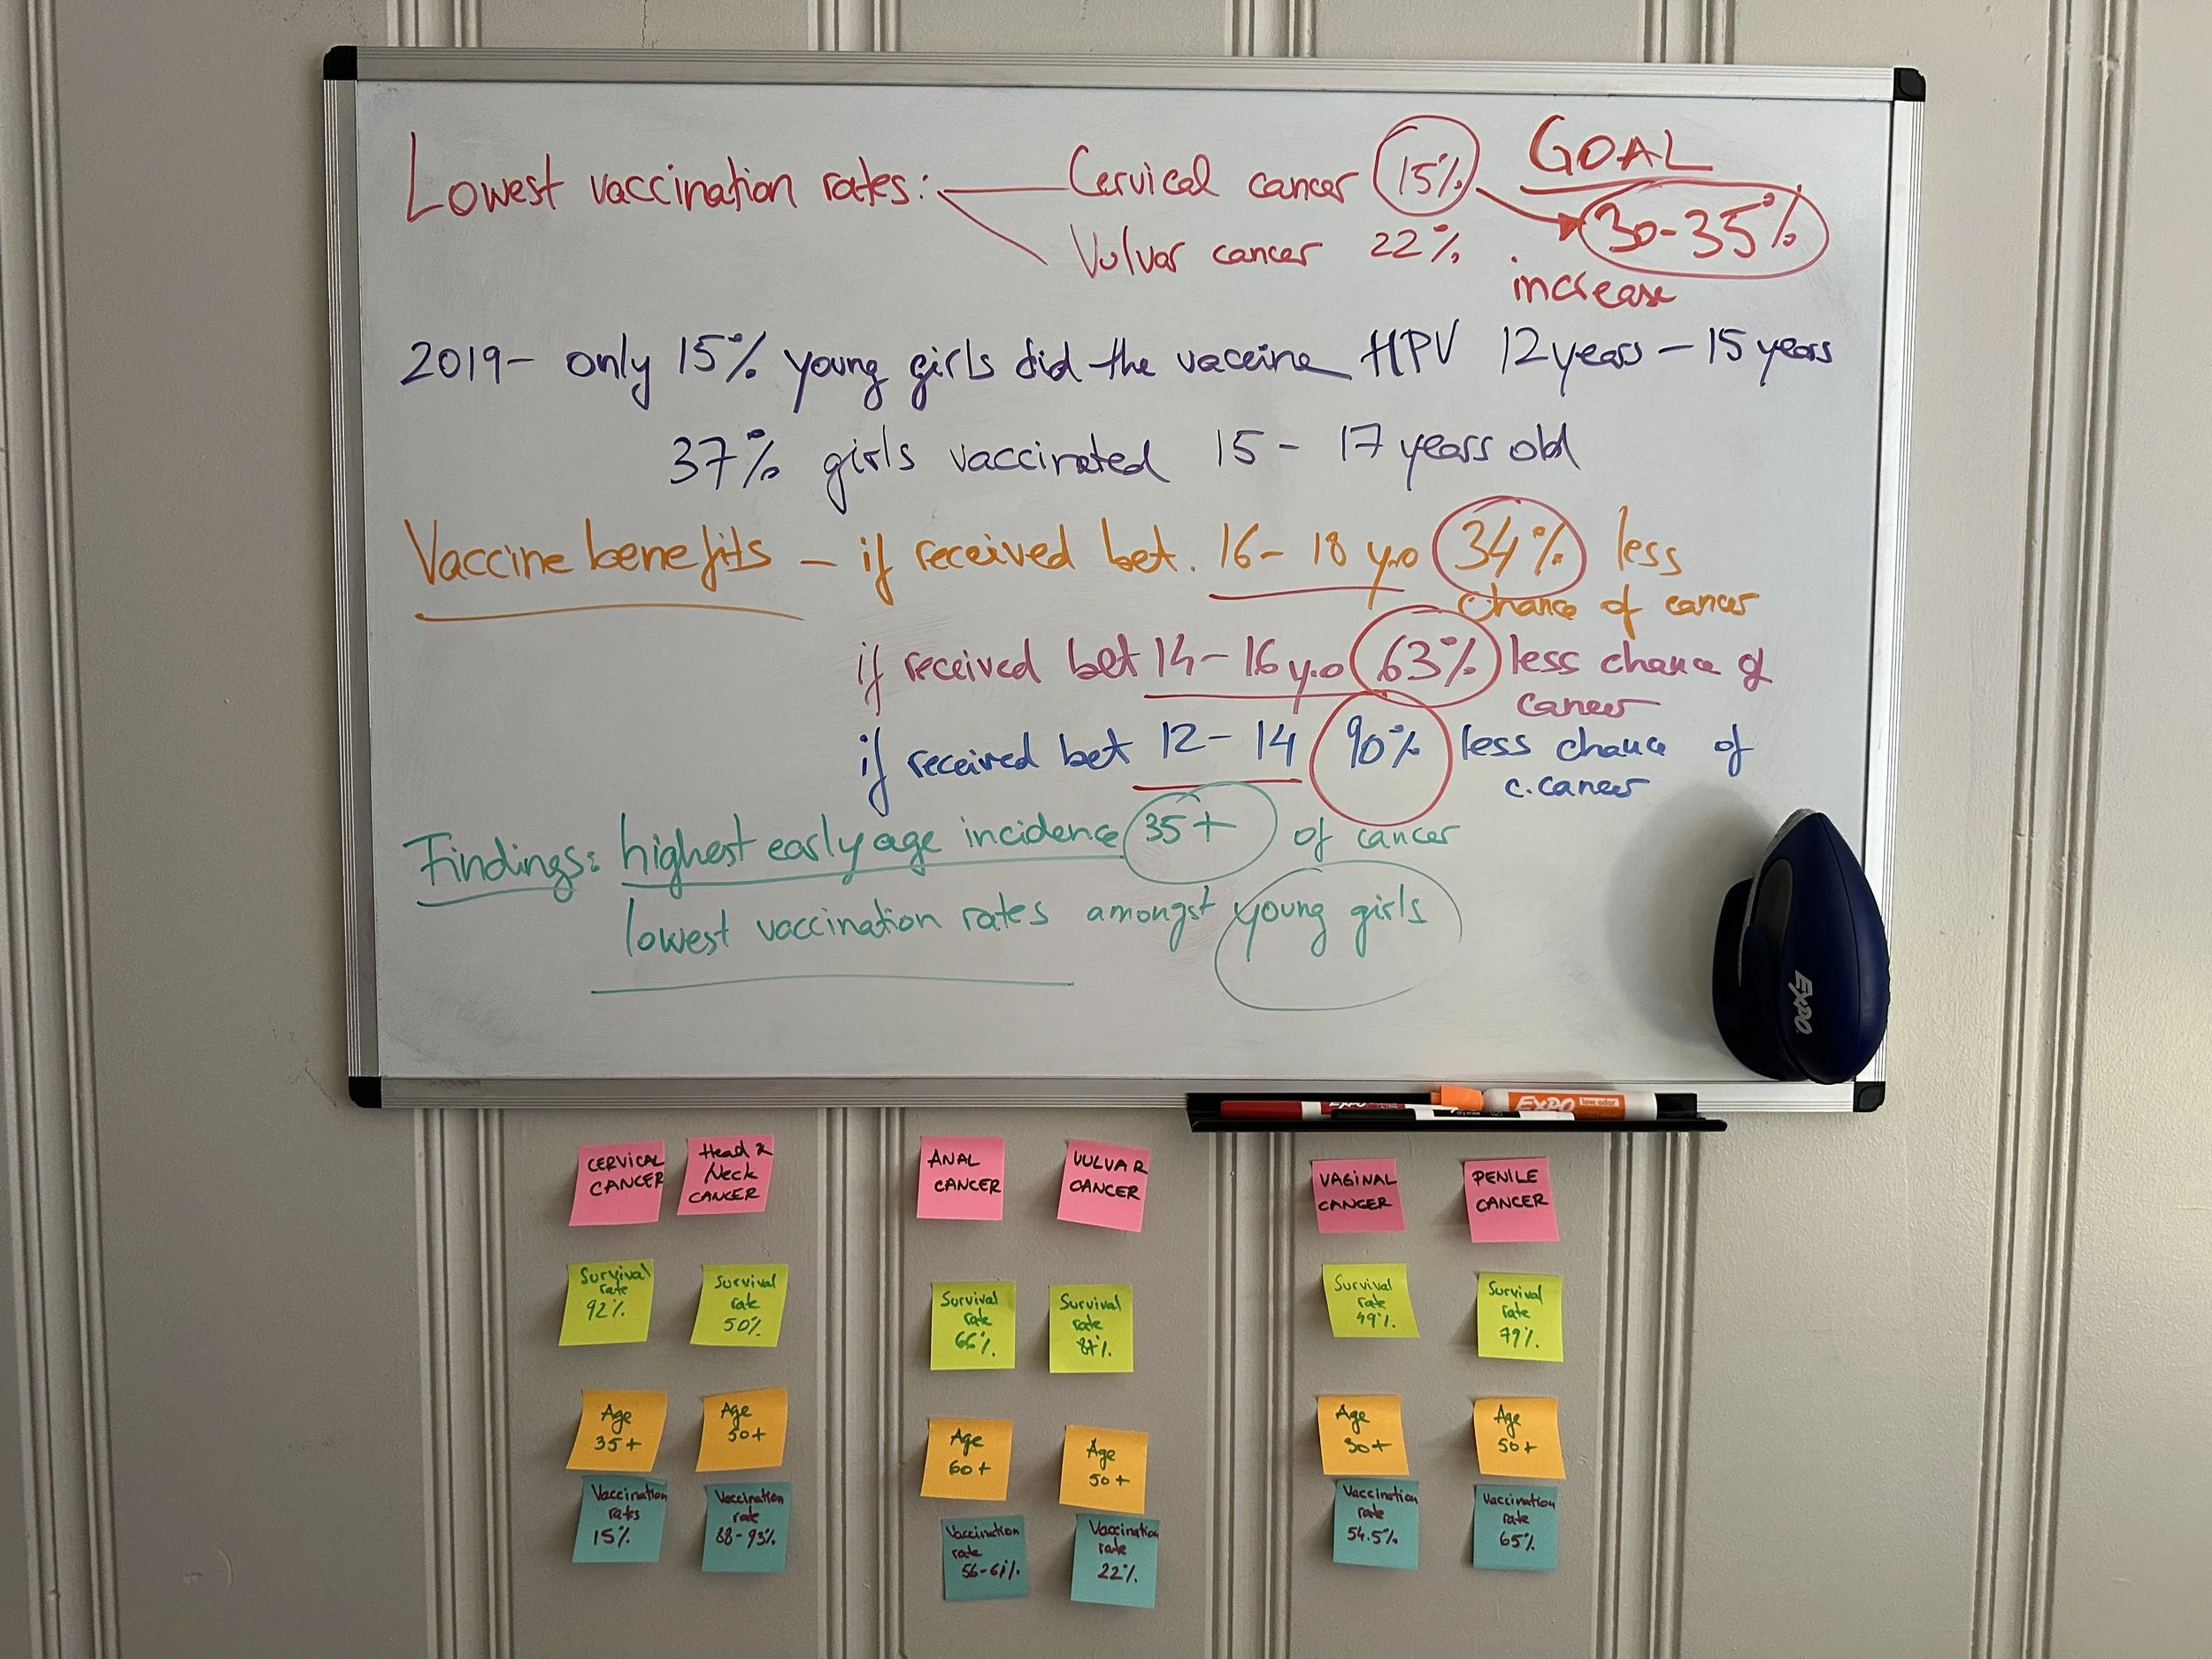 Lowest vaccination rates: Cervical cancer 15% GOAL
30-35%
Vulvar cancer 22% increase
2019- only 15% young girls did the vaccine HPV 12 years - 15 years
37% girls vaccinated 15 - 17 years old
Vaccine benefits - if received bet. 16- 18 y.o 34% less
chance of cancer
if received bet 14-16 y.o 63% less chance of
cancer
if received bet 12-14 90% less chance of
c.cancer
Findings: highest early age incidence 35+ of cancer
lowest vaccination rates amongst young girls
EXPO
EXPO low odor
CERVICAL
CANCER
Head &
Neck
CANCER
ANAL
CANCER
VULVAR
CANCER
VAGINAL
CANCER
PENILE
CANCER
Survival
rate
92%
Survival
rate
50%
Survival
rate
66%
Survival
rate
87%
Survival
rate
49%
Survival
rate
79%
Age
35+
Age
50+
Age
60+
Age
50+
Age
50+
Vaccination
rates
15%
Vaccination
rate
88-93%
Vaccination
rate
56-61%
Vaccination
rate
22%
Vaccination
rate
54.5%
Vaccination
rate
65%